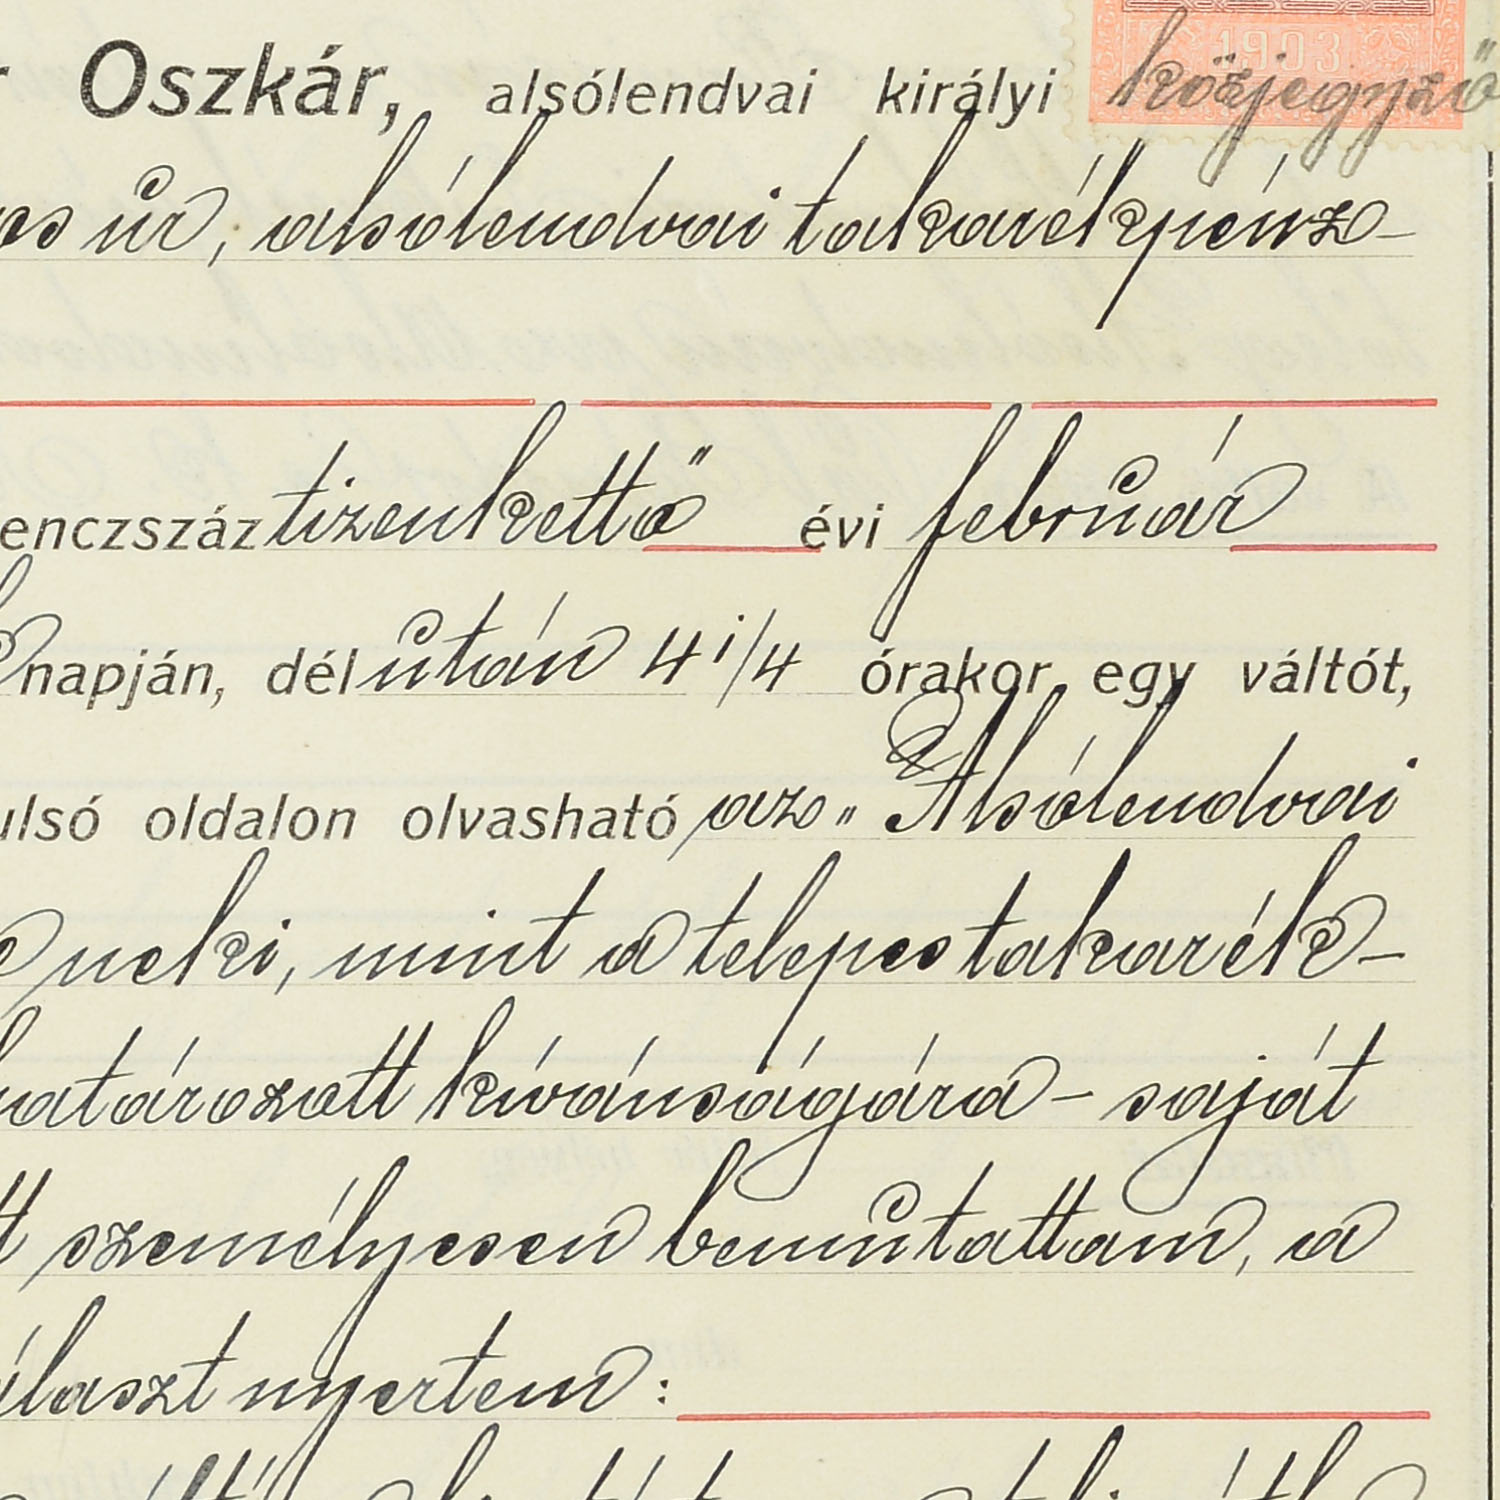 Oszkár, alsólendvai királyi 1903 közjegyző
úr, alsólendvai takarékpénz-
enczszáz tizenkettő évi február
napján, délután 4 1/4 órakor egy váltót,
ulsó oldalon olvasható az „Alsólendvai
neki, mint a telepes takarék-
határozott kívánságára - saját
személyesen bemutattam, a
választ nyertem: